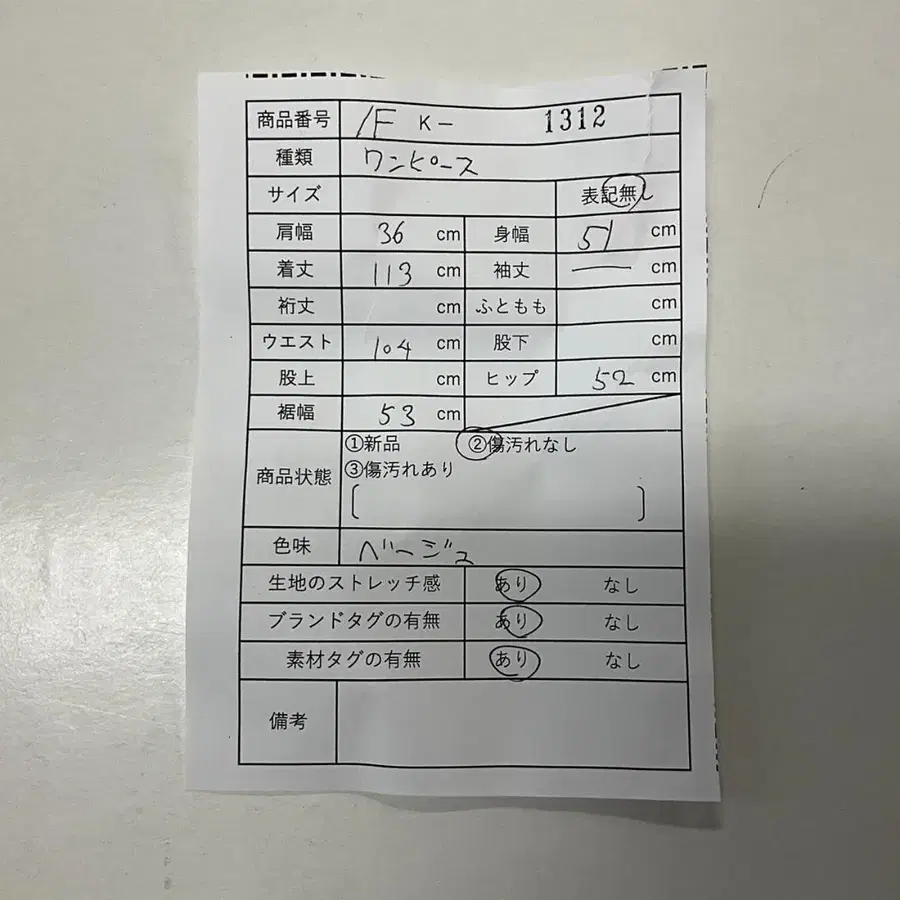 商品番号 1F K- 1312
種類 ワンピース
サイズ 表記無し
肩幅 36 cm 身幅 51 cm
着丈 113 cm 袖丈 — cm
裄丈 cm ふともも cm
ウエスト 104 cm 股下 cm
股上 cm ヒップ 52 cm
裾幅 53 cm
商品状態 ①新品 ②傷汚れなし
③傷汚れあり
[ ]
色味 ベージュ
生地のストレッチ感 あり なし
ブランドタグの有無 あり なし
素材タグの有無 あり なし
備考